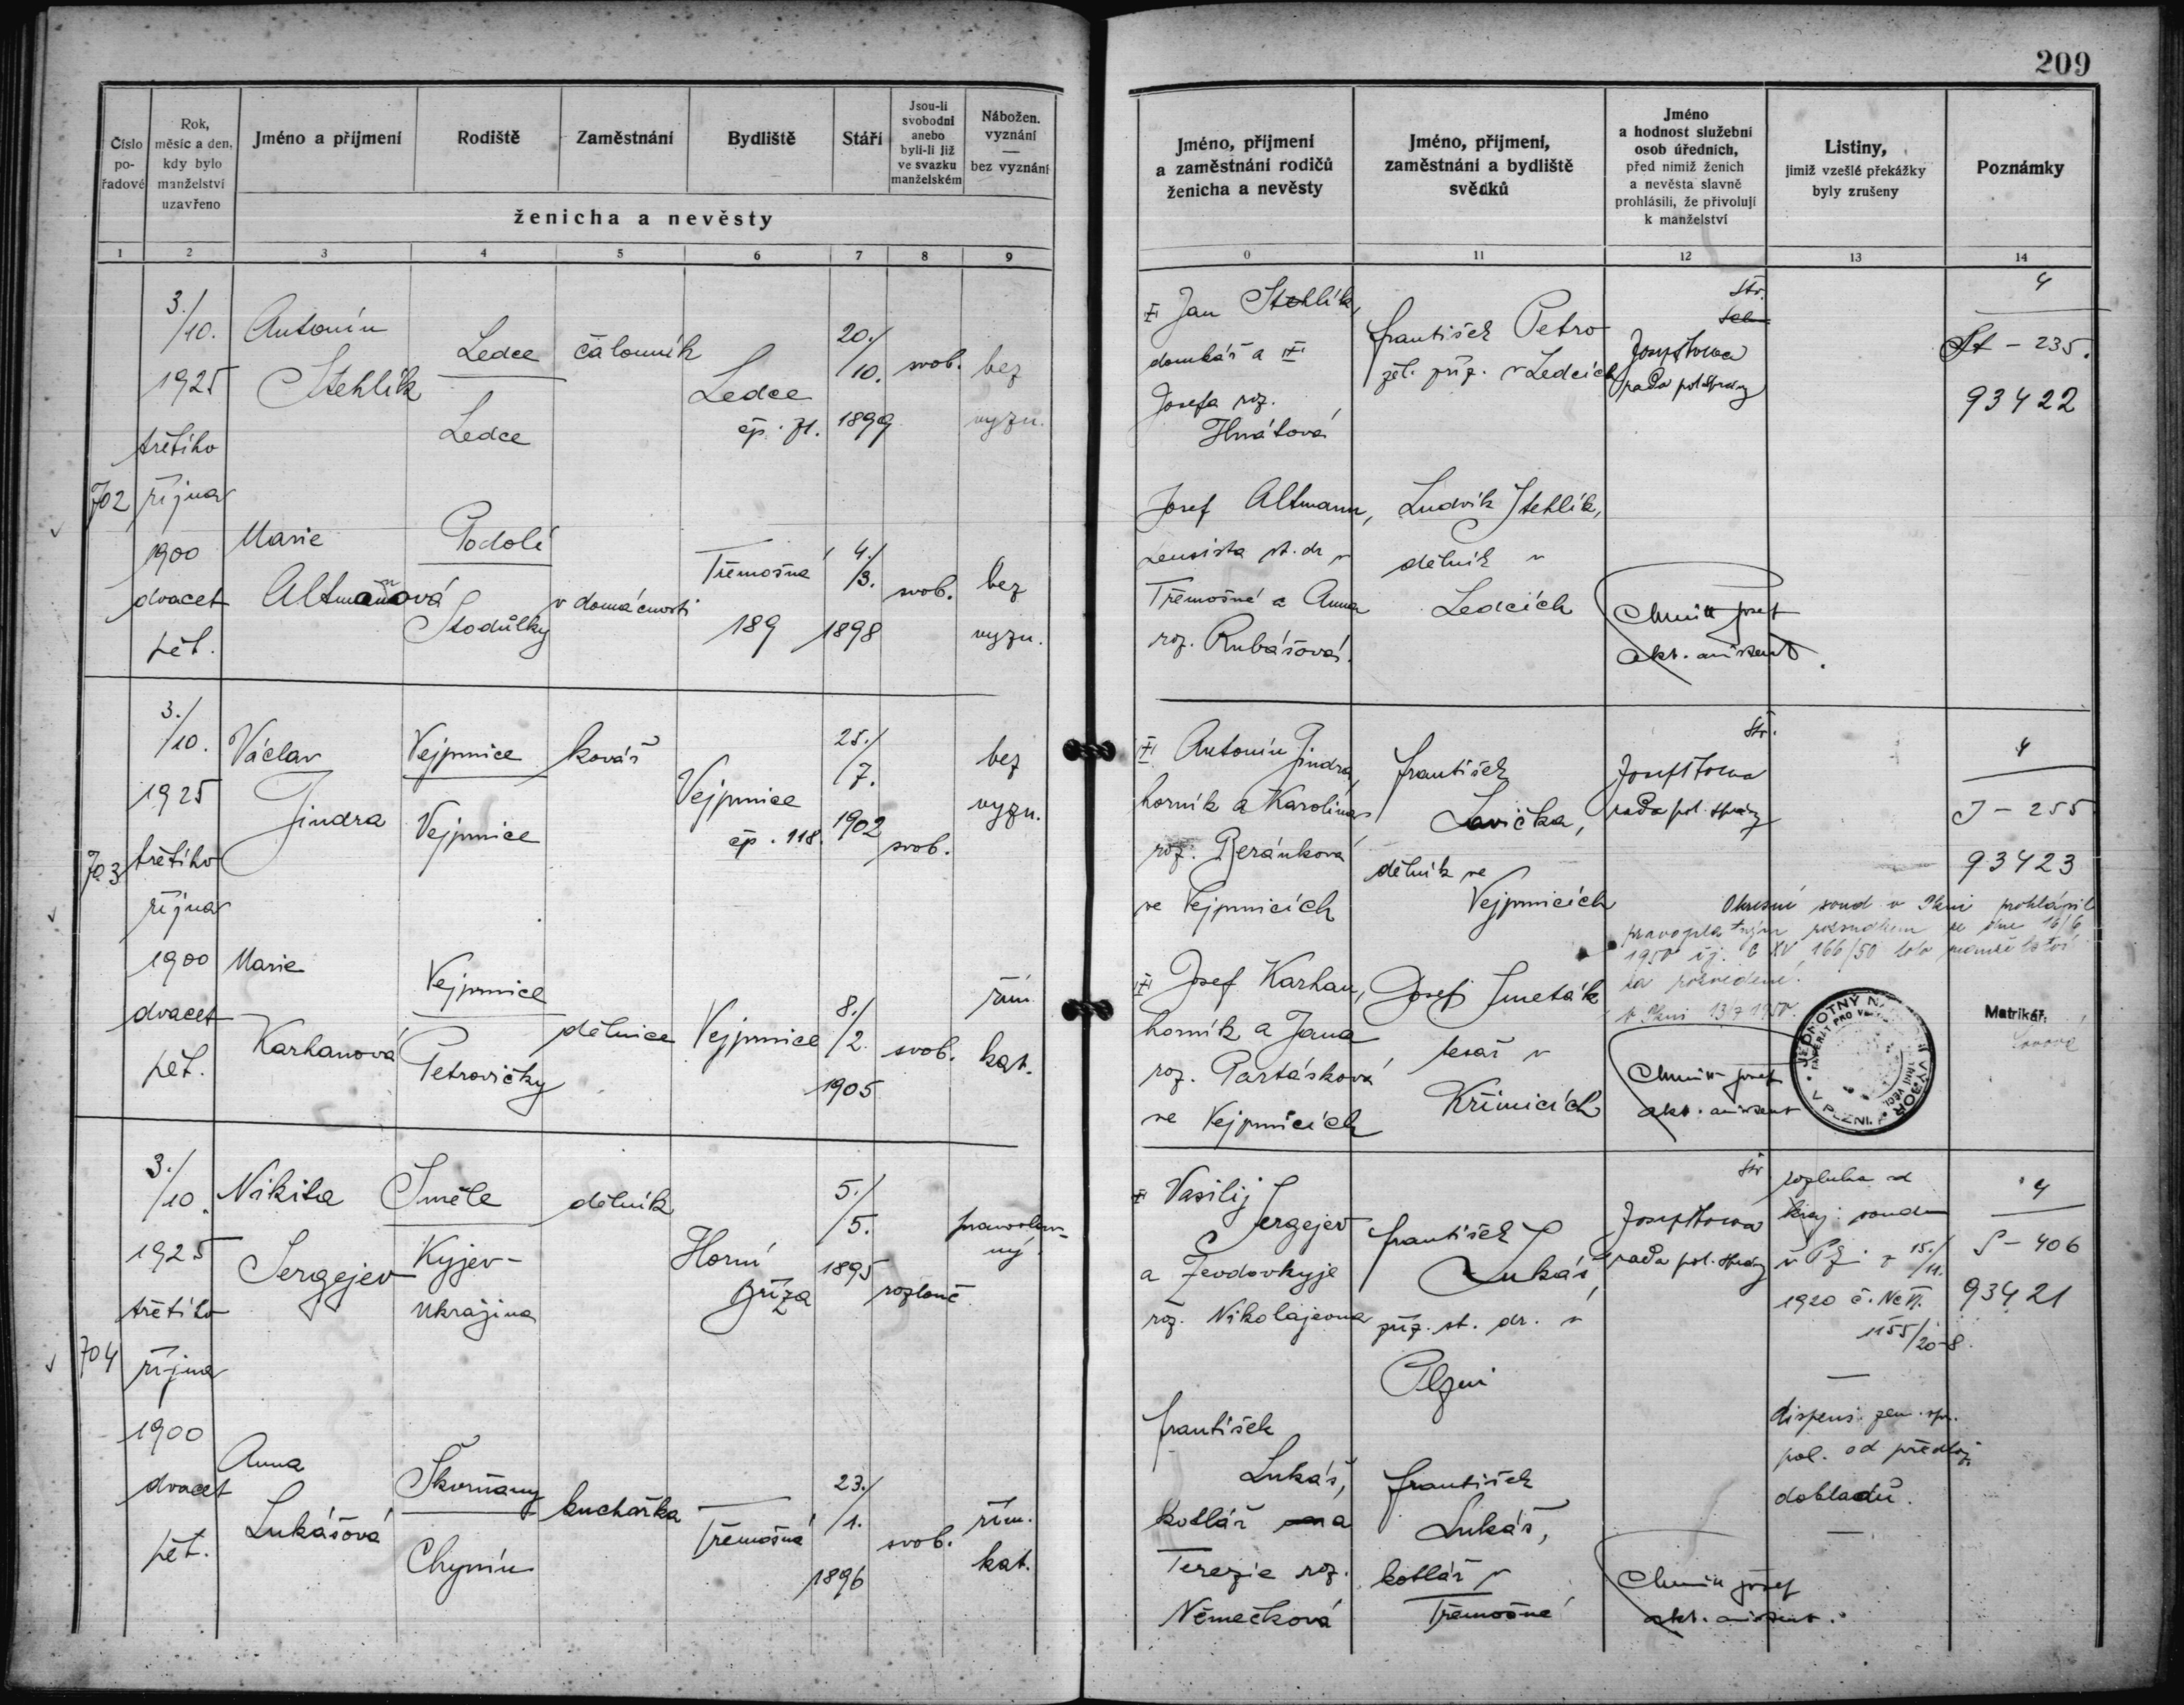 209
Číslo
po-
řadové
Rok,
měsíc a den,
kdy bylo
manželství
uzavřeno
Jméno a příjmení
Rodiště
Zaměstnání
Bydliště
Stáří
Jsou-li
svobodni
anebo
byli-li již
ve svazku
manželském
Nábožen.
vyznání
—
bez vyznání
ženicha a nevěsty
Jméno, příjmení
a zaměstnání rodičů
ženicha a nevěsty
Jméno, příjmení,
zaměstnání a bydliště
svědků
Jméno
a hodnost služební
osob úředních,
před nimiž ženich
a nevěsta slavně
prohlásili, že přivolují
k manželství
Listiny,
jimiž vzešlé překážky
byly zrušeny
Poznámky
1 2 3 4 5 6 7 8 9
0 11 12 13 14
702
3./
/10.
1925
třetího
října
1900
dvacet
pět.
Antonín
Stehlík
Ledce
Ledce
čalouník
Ledce
čp. 71.
20./
/10.
1899
svob.
bez
vyzn.
Jan Stehlík,
domkář a
Josefa roz.
Hnátová
František Petro
zel. zříz. v Ledcích
Str.
rada pol. správy
4
St - 235.
93422
Marie
Altmanová
Podolí
Stodůlky
v domácnosti
Třemošná
189
4./
/3.
1898
svob.
bez
vyzn.
Josef Altmann,
pensista st. dr. v
Třemošné a Anna
roz. Rubášová.
Ludvík Stehlík,
dělník v
Ledcích
Josef
akt. assistent.
703
3./
/10.
1925
třetího
října
1900
dvacet
pět.
Václav
Jindra
Vejprnice
Vejprnice
kovář
Vejprnice
čp. 118.
25./
/7.
1902
svob.
bez
vyzn.
Antonín Jindra,
horník a Karolina
roz. Beránková
ve Vejprnicích
František
Lavička,
dělník ve
Vejprnicích
Str.
rada pol. správy
4
J - 255
93423
Okresní soud v Plzni prohlásil
pravoplatným rozsudkem ze dne 16/6
1950 čj. C XV 166/50 toto manželství
za rozvedené.
V Plzni 13/7 1950.
Matrikář:
JEDNOTNÝ N. VÝBOR
V PLZNI
Marie
Karhanová
Vejprnice
Petrovičky
dělnice
Vejprnice
8./
/2.
1905
svob.
řím.
kat.
Josef Karhan,
horník a Jana
roz. Partásková
ve Vejprnicích
Josef Smeták
tesař v
Křimicích
Josef
akt. assistent
704
3./
/10.
1925
třetího
října
1900
dvacet
pět.
Nikita
Sergejev
Směla
Kyjev-
Ukrajina
dělník
Horní
Bříza
5./
/5.
1895
rozlouč.
pravoslav-
ný.
Vasilij
Sergejev
a
roz. Nikolajevna
František
Lukáš,
zříz. st. dr. v
Plzni
rada pol. správy
rozluka od
kraj. soudu
v Pz. z 15./
/11.
1920 č. Nc VI.
1155/20-8.
4
S - 406
93421
Anna
Lukášová
Skvrňany
Chynín
kuchařka
Třemošná
23./
/1.
1896
svob.
řím.
kat.
František
Lukáš,
kotlář a
Terezie roz.
Němečková
František
Lukáš,
kotlář v
Třemošné
Josef
akt. assistent.
dispens. zem. spr.
pol. od předlož.
dokladů.